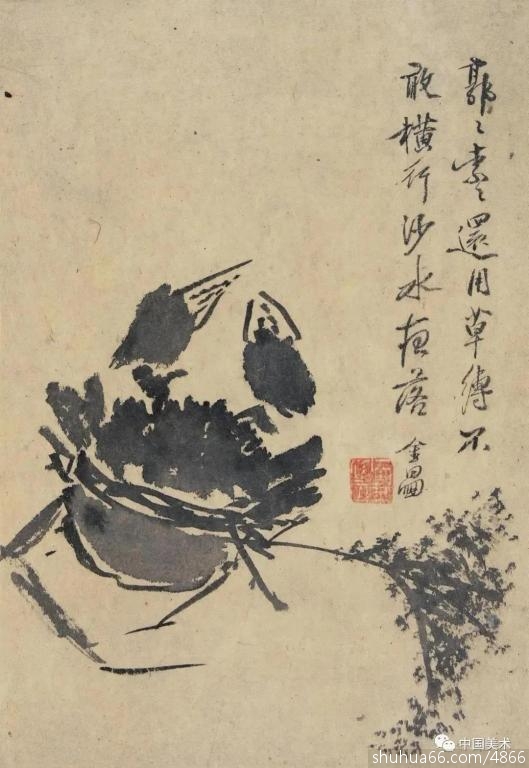 郭〻索〻還用草縛不
敢橫行沙水夜落
金罍
中国美术
shuhua66.com/4866